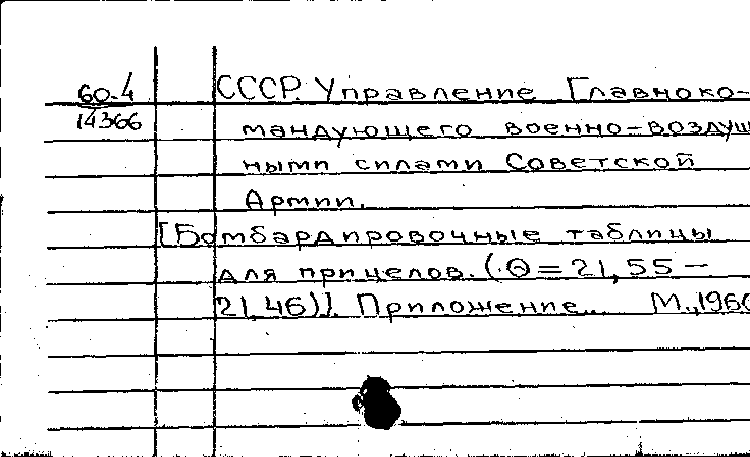 60-4
14366
СССР. Управление Главноко-
мандующего военно-воздуш
ными силами Советской
Армии.
[Бомбардировочные таблицы
для прицелов. (Θ = 21,55 —
21,46)]. Приложение... М.,196